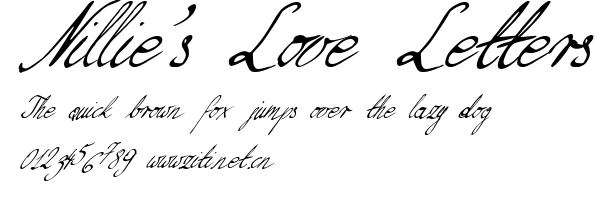 Nillie's Love Letters
The quick brown fox jumps over the lazy dog
0123456789 www.zitinet.cn